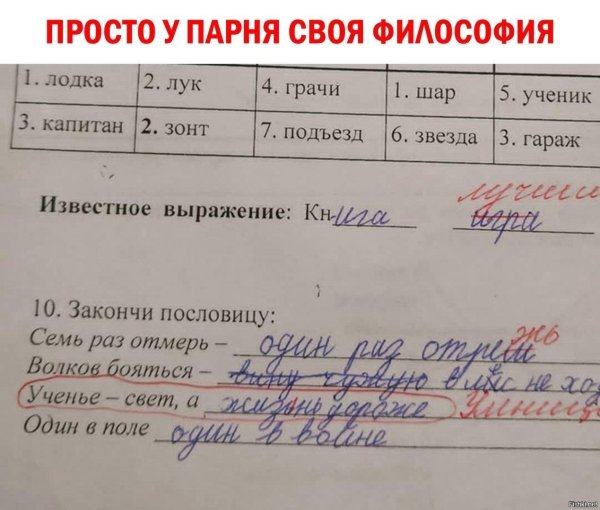 ПРОСТО У ПАРНЯ СВОЯ ФИЛОСОФИЯ
1. лодка 2. лук 4. грачи 1. шар 5. ученик
3. капитан 2. зонт 7. подъезд 6. звезда 3. гараж
лучши
Известное выражение: Книга игра
10. Закончи пословицу:
Семь раз отмерь – один раз отрежь
Волков бояться – вину чужую в лес не хо
Ученье – свет, а жизнь дороже
Один в поле один в войне
Fishki.net